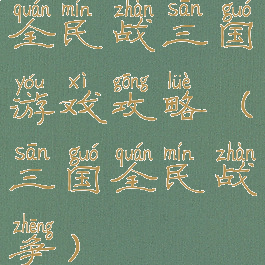 quán mín zhàn sān guó
全民战三国
yóu xì gōng lüè
游戏攻略（
sān guó quán mín zhàn
三国全民战
zhēng
争）